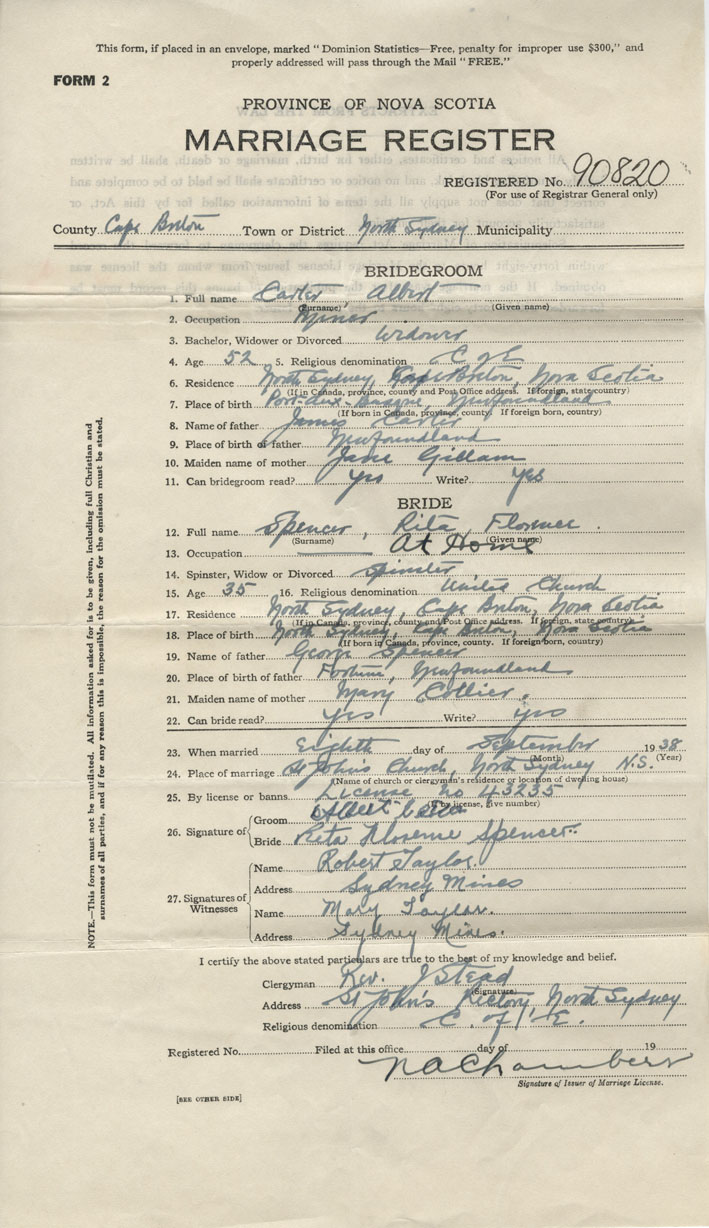 This form, if placed in an envelope, marked "Dominion Statistics—Free, penalty for improper use $300," and
properly addressed will pass through the Mail "FREE."
FORM 2
PROVINCE OF NOVA SCOTIA
MARRIAGE REGISTER
REGISTERED No. 90820
(For use of Registrar General only)
County Cape Breton Town or District North Sydney Municipality
BRIDEGROOM
1. Full name Carter, Albert
(Surname) (Given name)
2. Occupation Miner
3. Bachelor, Widower or Divorced Widower
4. Age 52 5. Religious denomination C of E
6. Residence North Sydney, Cape Breton, Nova Scotia
(If in Canada, province, county and Post Office address. If foreign, state country)
7. Place of birth Port-aux-Basque, Newfoundland
(If born in Canada, province, county. If foreign born, country)
8. Name of father James Carter
9. Place of birth of father Newfoundland
10. Maiden name of mother Jane Gillam
11. Can bridegroom read? Yes Write? Yes
BRIDE
12. Full name Spencer, Rita Florence.
(Surname) (Given name)
13. Occupation At Home
14. Spinster, Widow or Divorced Spinster
15. Age 35 16. Religious denomination United Church
17. Residence North Sydney, Cape Breton, Nova Scotia
(If in Canada, province, county and Post Office address. If foreign, state country)
18. Place of birth North Sydney, Cape Breton, Nova Scotia
(If born in Canada, province, county. If foreign born, country)
19. Name of father George Spencer
20. Place of birth of father Fortune, Newfoundland
21. Maiden name of mother Mary Collier.
22. Can bride read? Yes Write? yes
23. When married Eighth day of September 1938
(Month) (Year)
24. Place of marriage St John's Church, North Sydney N.S.
(Name of church or clergyman's residence or location of dwelling house)
25. By license or banns License no 43235
(If by license, give number)
26. Signature of Groom Albert
Bride Rita Florence Spencer.
27. Signatures of Witnesses
Name Robert Taylor.
Address Sydney Mines
Name Mary Taylor.
Address Sydney Mines.
I certify the above stated particulars are true to the best of my knowledge and belief.
Clergyman Rev. J Stead
(Signature)
Address St John's Rectory North Sydney
Religious denomination C. of E.
Registered No. Filed at this office day of 19
N A Chambers
Signature of Issuer of Marriage License.
[SEE OTHER SIDE]
NOTE.—This form must not be mutilated. All information asked for is to be given, including full Christian and
surnames of all parties, and if for any reason this is impossible, the reason for the omission must be stated.